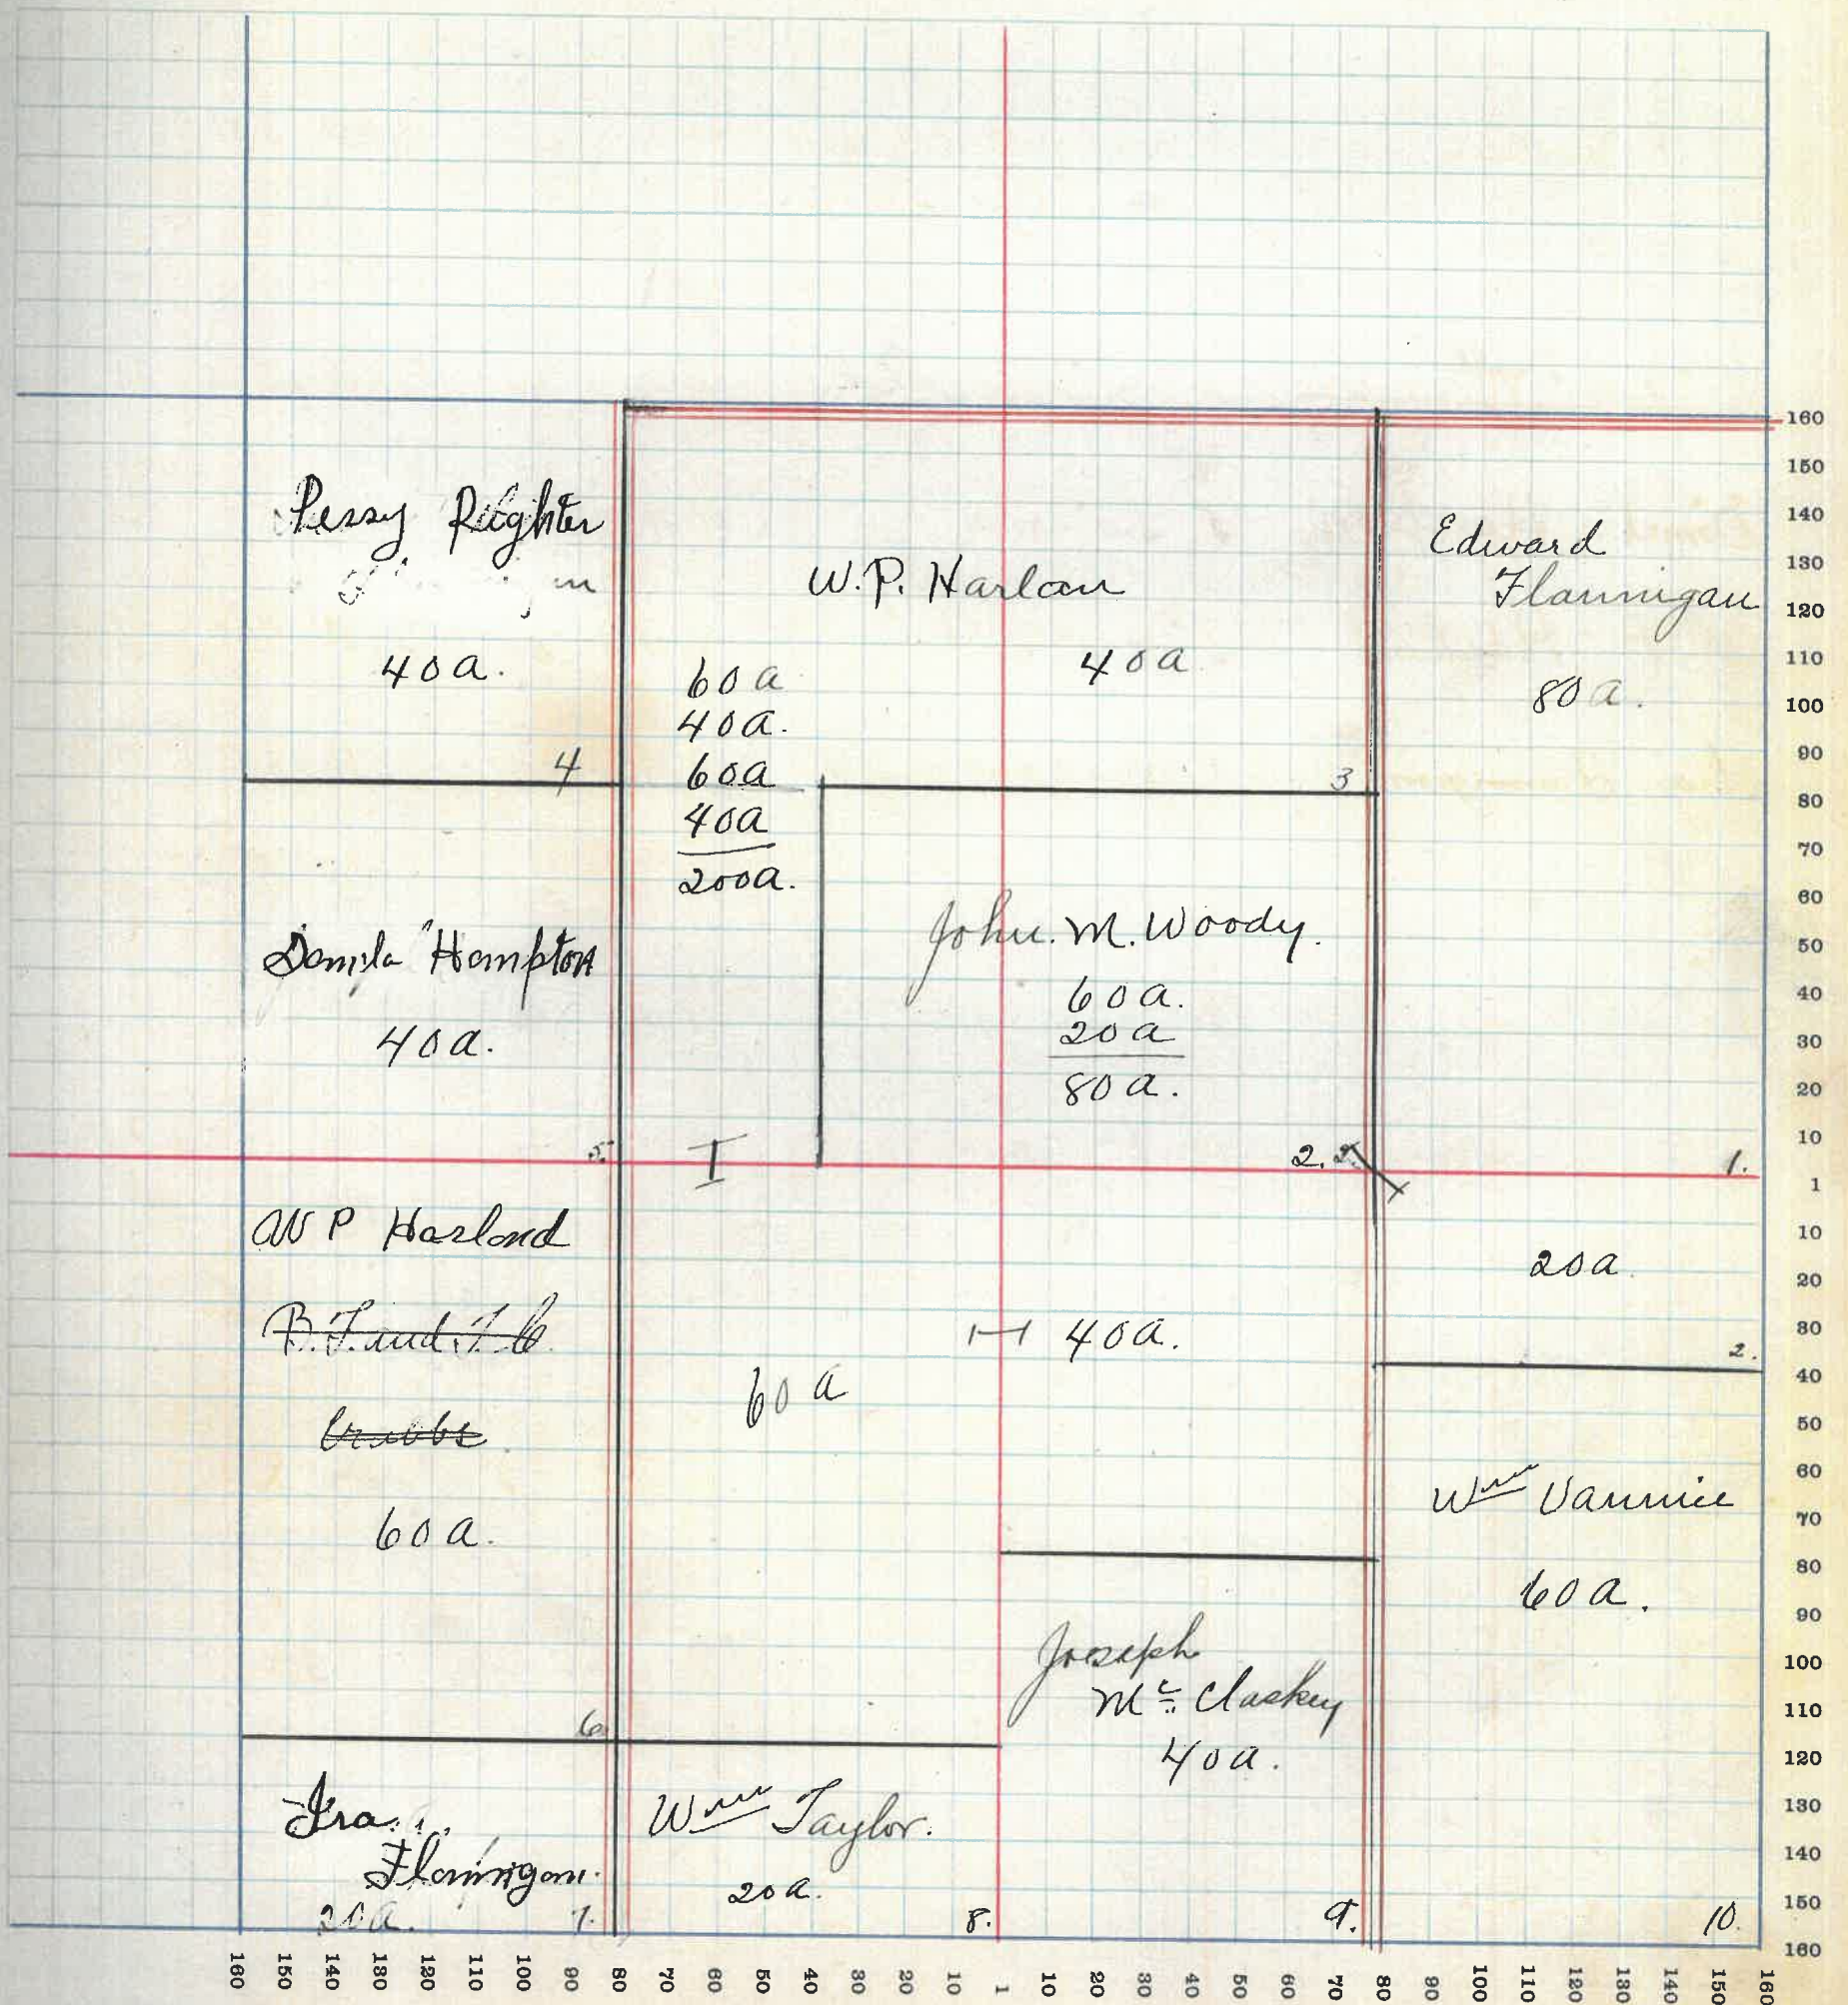 Righter
40a.
4
W.P. Harlan
40a
60a
40a.
60a
40a
200a.
3
Edward
Flannigan
80a.
Hampton
40a.
5.
John. M. Woody.
60a.
20a
80a.
2. 2.
1.
W P Harlond
B.F. and
60a.
6.
60a
40a.
20a
2.
Wm Vannice
60a.
10.
Ira
Flannigan.
20a.
7.
Wm Taylor.
20a.
8.
Joseph
Mc Claskey
40a.
9.
160
150
140
130
120
110
100
90
80
70
60
50
40
30
20
10
1
10
20
30
40
50
60
70
80
90
100
110
120
130
140
150
160
160 150 140 130 120 110 100 90 80 70 60 50 40 30 20 10 1 10 20 30 40 50 60 70 80 90 100 110 120 130 140 150 160